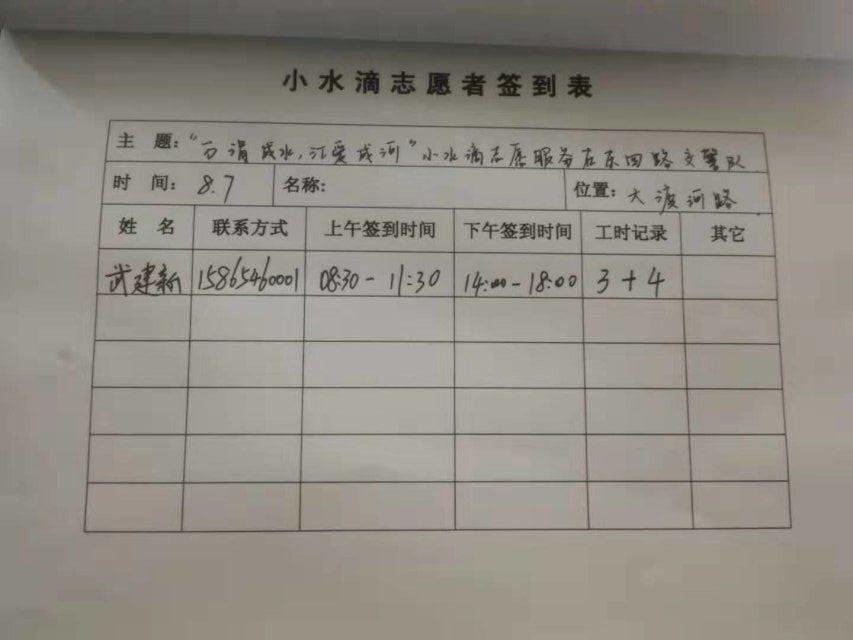 小水滴志愿者签到表
主 题：“万涓成水，汇爱成河”小水滴志愿服务在东四路交警队
时 间：8.7 名称： 位置：大渡河路
姓 名 联系方式 上午签到时间 下午签到时间 工时记录 其它
武建新 15865460001 08:30-11:30 14:00-18:00 3+4